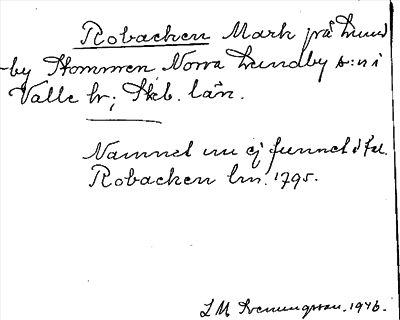 Robacken Mark på Lund
-by Stommen, Norra Lundby s:n i
Valle hr; Skb. län.
Namnet nu ej funnet i fal.
Robacken lm. 1795.
L M Svenungsson. 1946.